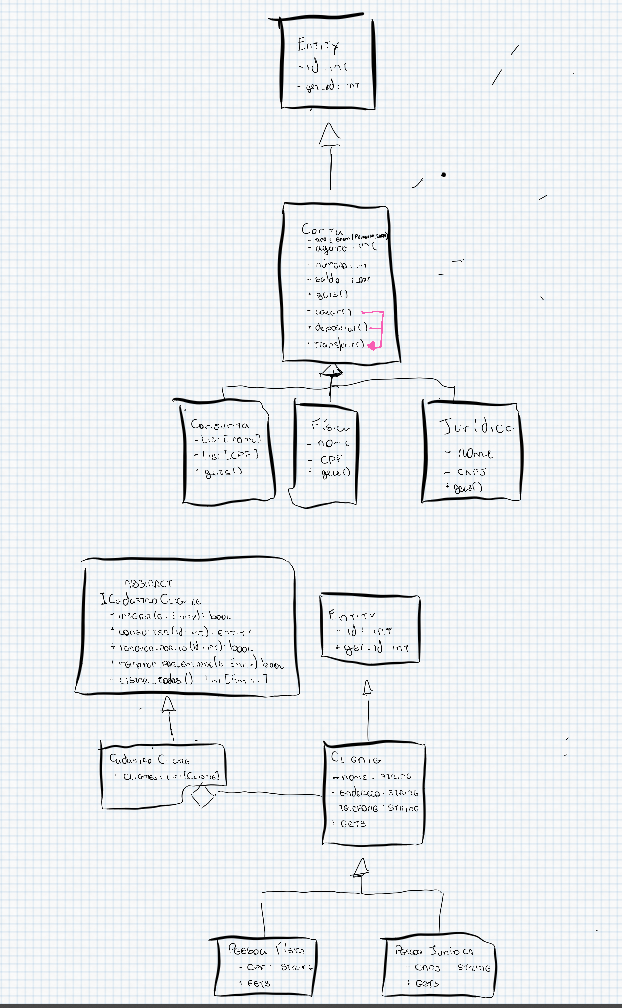 Entity
- id: int
- get_id: int
Conta
- saldo:
+ gets()
- sacar()
+ depositar()
+ transferir()
Conjunta
- List[nome]
- List[CPF]
+ gets()
Física
- nome
- CPF
+ gets()
Jurídica
- Nome
- CNPJ
+ gets()
ABSTRACT
ICadastroCliente
bool
(id: int): Entity
remover_por_id(id: int): bool
bool
+ listar_todos()
Entity
- id: int
+ get_id: int
Cadastro Cliente
- clientes: List[Cliente]
Cliente
- NOME: STRING
- Endereço: STRING
Telefone: STRING
: GETS
Pessoa Física
- CPF: STRING
: GETS
Pessoa Jurídica
CNPJ: STRING
: GETS